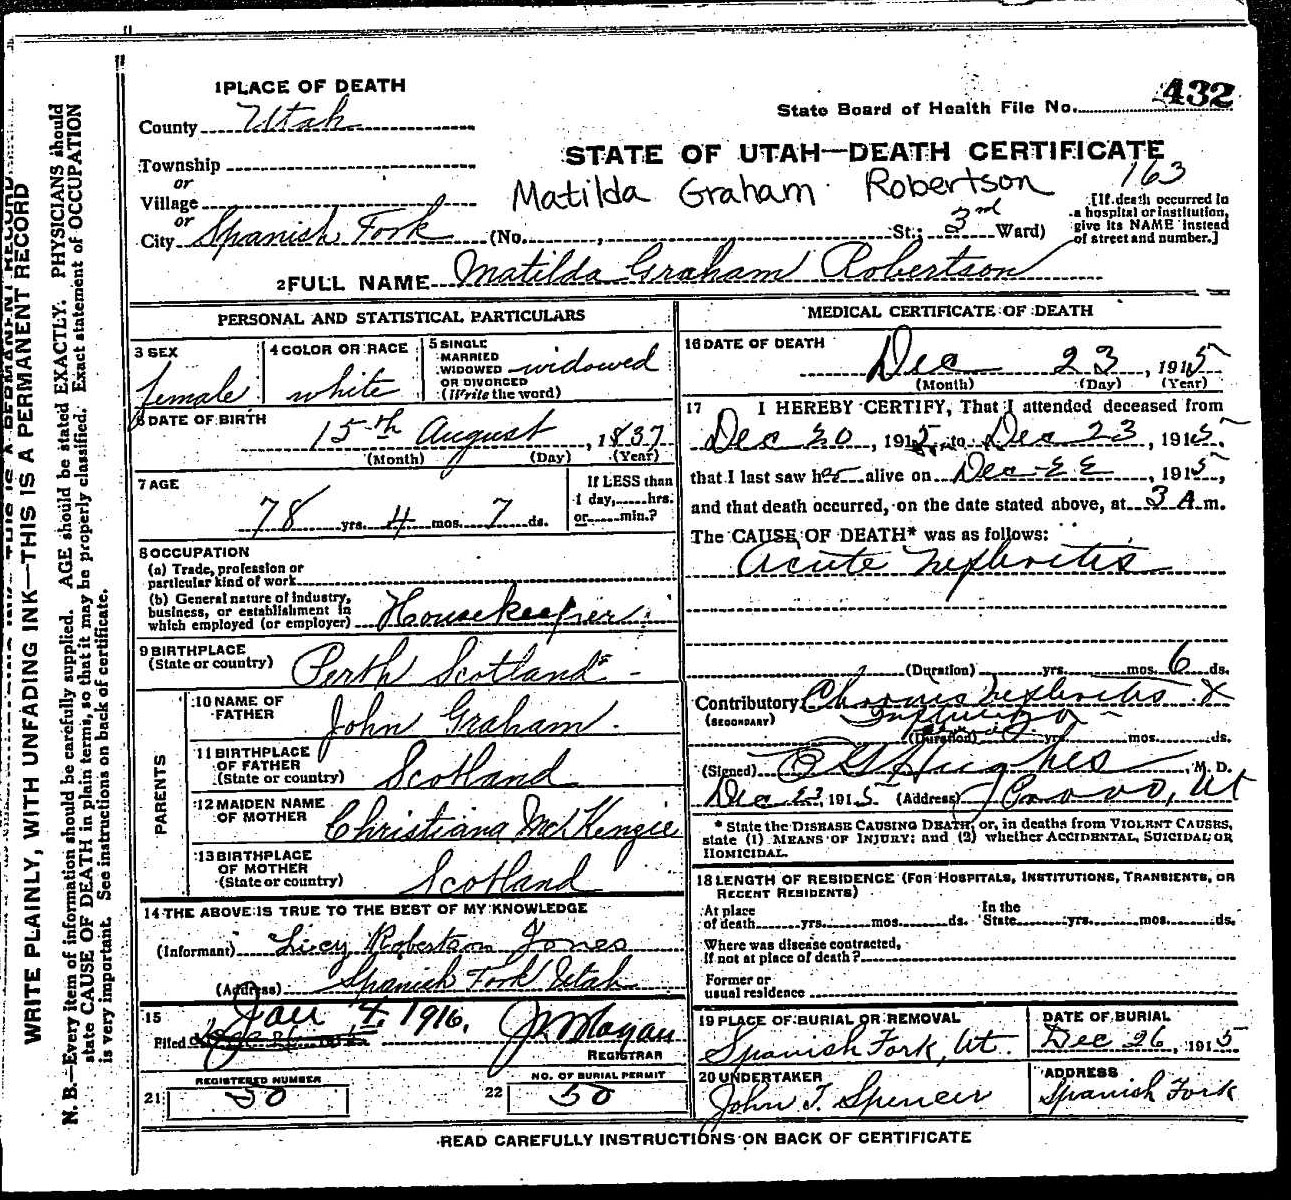 1 PLACE OF DEATH
County Utah
State Board of Health File No. 432
Township
or
Village
or
City Spanish Fork
STATE OF UTAH—DEATH CERTIFICATE
163
Matilda Graham Robertson
(No. , St.; 3rd Ward)
[If death occurred in
a hospital or institution,
give its NAME instead
of street and number.]
2 FULL NAME Matilda Graham Robertson
PERSONAL AND STATISTICAL PARTICULARS
3 SEX
female
4 COLOR OR RACE
white
5 SINGLE
MARRIED
WIDOWED
OR DIVORCED
(Write the word)
widowed
6 DATE OF BIRTH
15th August, 1837
(Month) (Day) (Year)
7 AGE
78 yrs. 4 mos. 7 ds.
If LESS than
1 day, hrs.
or min.?
8 OCCUPATION
(a) Trade, profession or
particular kind of work
(b) General nature of industry,
business, or establishment in
which employed (or employer) Housekeeper
9 BIRTHPLACE
(State or country) Perth Scotland
PARENTS
10 NAME OF
FATHER John Graham
11 BIRTHPLACE
OF FATHER
(State or country) Scotland
12 MAIDEN NAME
OF MOTHER Christiana McKenzie
13 BIRTHPLACE
OF MOTHER
(State or country) Scotland
14 THE ABOVE IS TRUE TO THE BEST OF MY KNOWLEDGE
(Informant) Lucy Robertson Jones
(Address) Spanish Fork Utah
15
Filed Jan 4, 1916.
REGISTRAR
21 REGISTERED NUMBER 50
22 NO. OF BURIAL PERMIT 50
MEDICAL CERTIFICATE OF DEATH
16 DATE OF DEATH
Dec 23, 1915
(Month) (Day) (Year)
17 I HEREBY CERTIFY, That I attended deceased from
Dec 20, 1915, to Dec 23, 1915,
that I last saw her alive on Dec 22, 1915,
and that death occurred, on the date stated above, at 3 A. m.
The CAUSE OF DEATH* was as follows:
Acute Nephritis
(Duration) yrs. mos. 6 ds.
Contributory Chronic Nephritis &
(SECONDARY)
(Duration) yrs. mos. ds.
(Signed) Hughes, M. D.
Dec 23, 1915 (Address) Provo, Ut
* State the DISEASE CAUSING DEATH, or, in deaths from VIOLENT CAUSES,
state (1) MEANS OF INJURY; and (2) whether ACCIDENTAL, SUICIDAL OR
HOMICIDAL.
18 LENGTH OF RESIDENCE (FOR HOSPITALS, INSTITUTIONS, TRANSIENTS, OR
RECENT RESIDENTS)
At place
of death yrs. mos. ds.
In the
State yrs. mos. ds.
Where was disease contracted,
If not at place of death?
Former or
usual residence
19 PLACE OF BURIAL OR REMOVAL
Spanish Fork, Ut.
DATE OF BURIAL
Dec 26, 1915.
20 UNDERTAKER
John T. Spencer
ADDRESS
Spanish Fork
READ CAREFULLY INSTRUCTIONS ON BACK OF CERTIFICATE
WRITE PLAINLY, WITH UNFADING INK—THIS IS A PERMANENT RECORD
N. B.—Every item of information should be carefully supplied. AGE should be stated EXACTLY. PHYSICIANS should
state CAUSE OF DEATH in plain terms, so that it may be properly classified. Exact statement of OCCUPATION
is very important. See instructions on back of certificate.